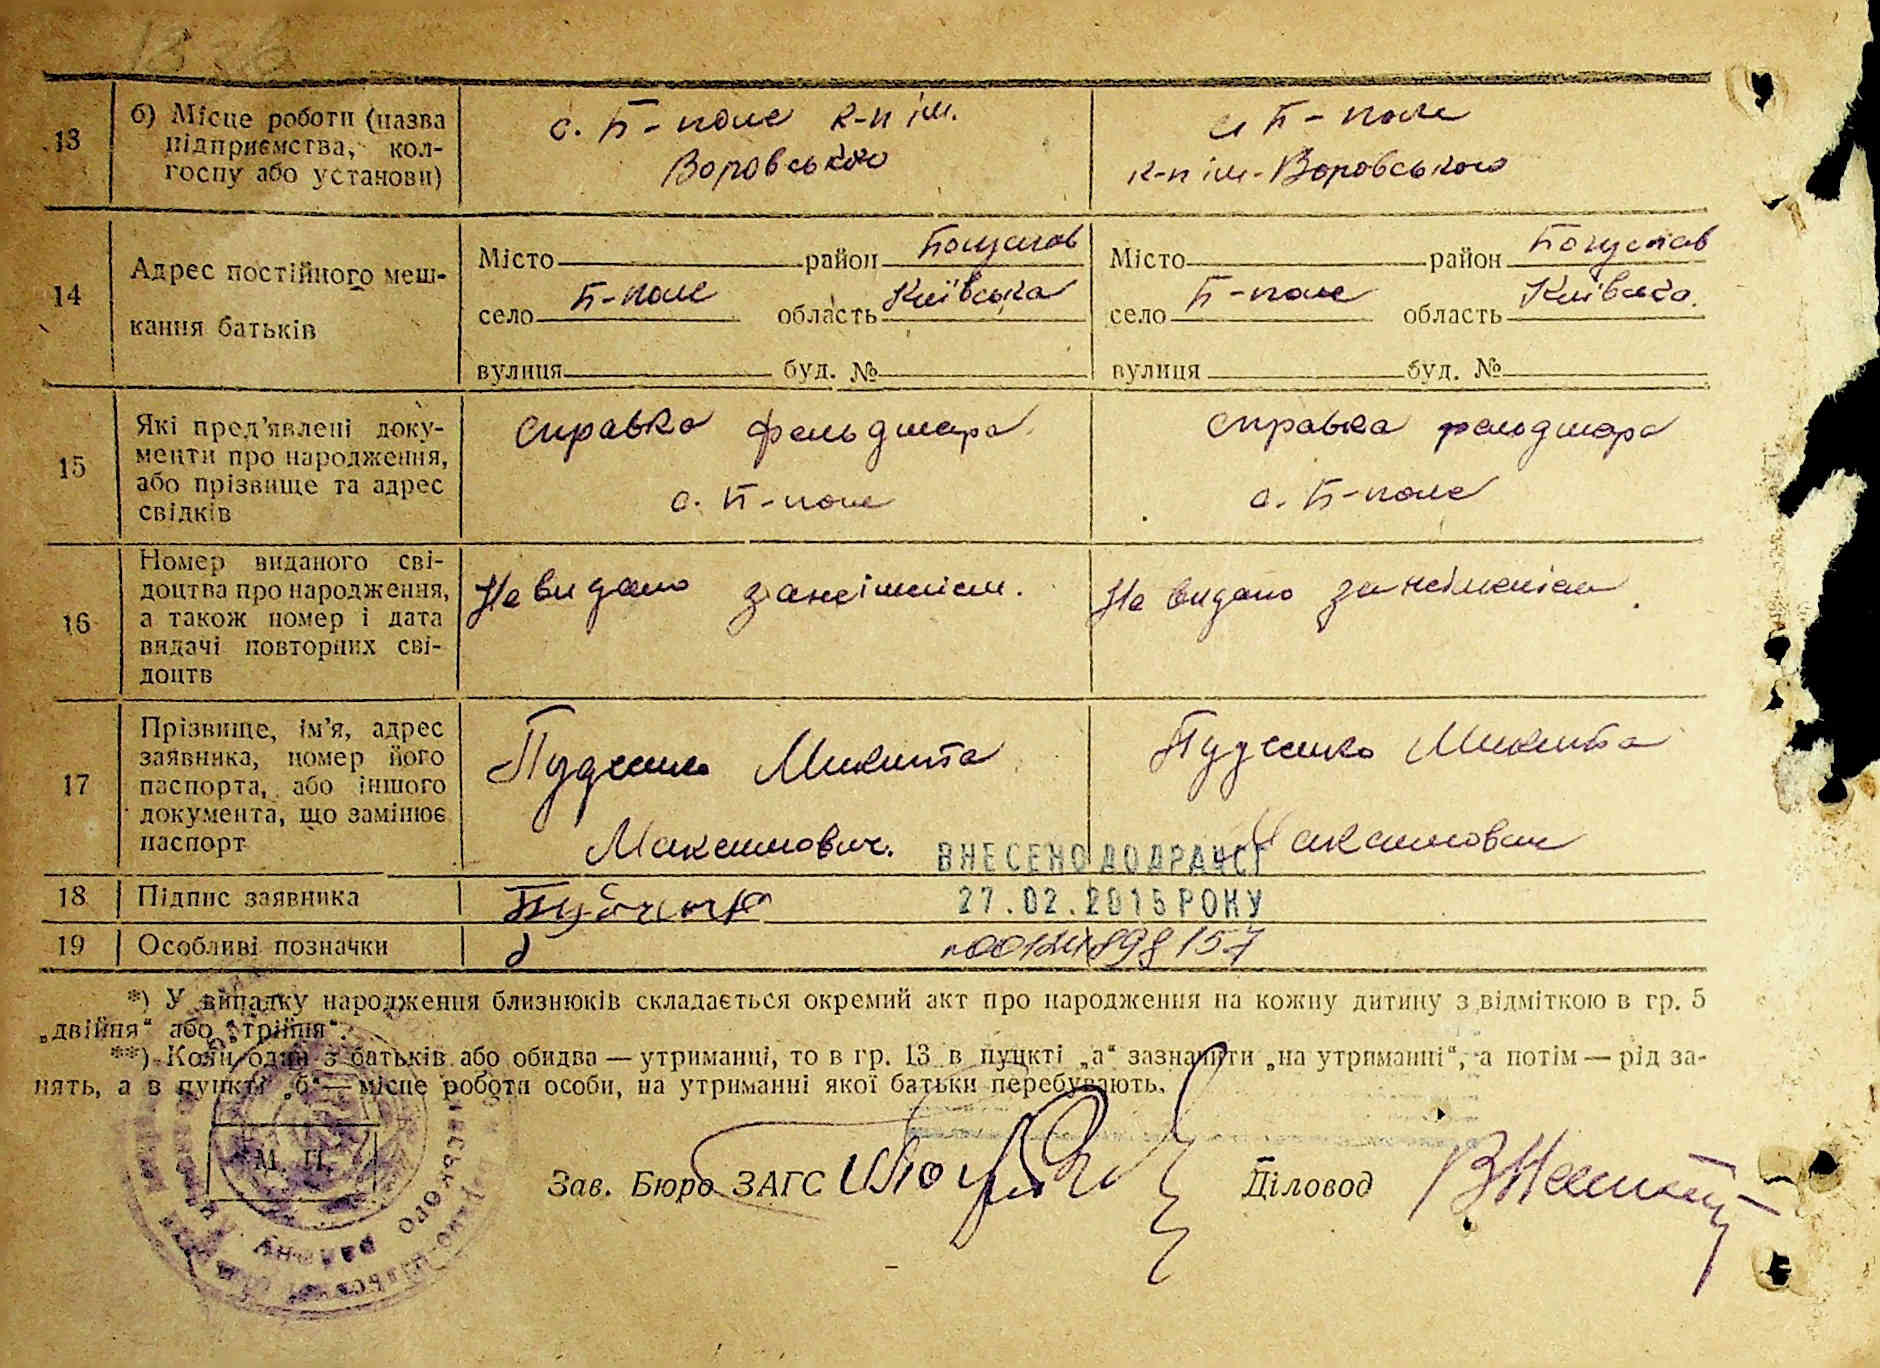 13
б) Місце роботи (назва
підприємства, кол-
госпу або установи)
с. Б-поле к-п ім.
Воровського
с Б-поле
к-п ім. Воровського
14
Адрес постійного меш-
кання батьків
Місто район Богуслав
село Б-поле область Київська
вулиця буд. №
Місто район Богуслав
село Б-поле область Київська.
вулиця буд. №
15
Які пред'явлені доку-
менти про народження,
або прізвище та адрес
свідків
справка фельдшера
с. Б-поле
справка фельдшера
с. Б-поле
16
Номер виданого сві-
доцтва про народження,
а також номер і дата
видачі повторних сві-
доцтв
Не видано
Не видано
17
Прізвище, ім'я, адрес
заявника, номер його
паспорта, або іншого
документа, що замінює
паспорт
Микита
Максимович.
Микита
Максимович
ВНЕСЕНО ДО ДРАЦСГ
18
Підпис заявника
27.02.2015 РОКУ
19
Особливі позначки
*) У випадку народження близнюків складається окремий акт про народження на кожну дитину з відміткою в гр. 5
„двійня“ або „трійня“.
**) Коли один з батьків або обидва — утриманці, то в гр. 13 в пункті „а“ зазначити „на утриманні“, а потім — рід за-
нять, а в пункті „б“ — місце роботи особи, на утриманні якої батьки перебувають.
М. П.
Зав. Бюро ЗАГС
Діловод